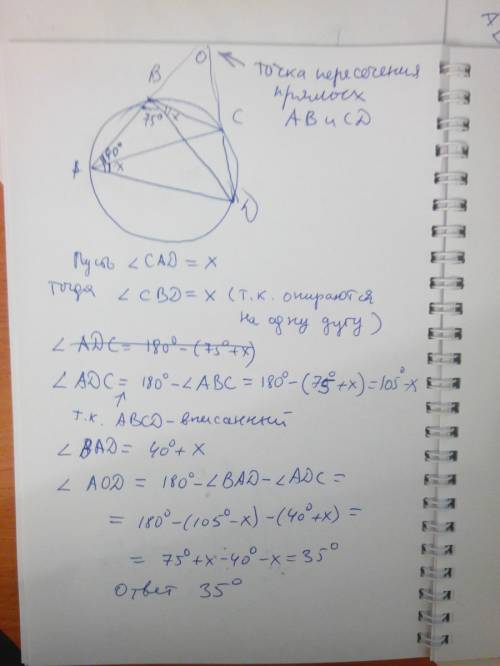 О
точка пересечения
прямых
АВ и СD
B
75° x
C
A 40° x
D
Пусть ∠CAD = x
тогда ∠CBD = x (т.к. опираются
на одну дугу)
∠ADC = 180° - (75° + x)
∠ADC = 180° - ∠ABC = 180° - (75° + x) = 105° - x
т.к. ABCD - вписанный
∠BAD = 40° + x
∠AOD = 180° - ∠BAD - ∠ADC =
= 180° - (105° - x) - (40° + x) =
= 75° + x - 40° - x = 35°
Ответ 35°